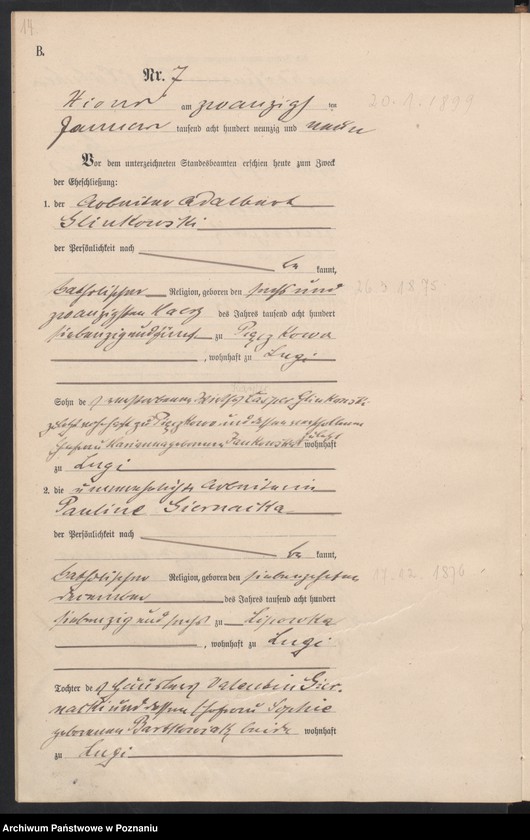 14
B.
Nr. 7
am zwanzigsten
20.1.1899
Januar tausend acht hundert neunzig und neun
Vor dem unterzeichneten Standesbeamten erschien heute zum Zweck
der Eheschließung:
1. der Arbeiter Adalbert
Glinkowski
der Persönlichkeit nach
be kannt,
katholischer Religion, geboren den sechs und
26 3 1875
zwanzigsten März des Jahres tausend acht hundert
siebenzig und fünf zu
, wohnhaft zu Lugi
Sohn des verstorbenen Wirths Casper Glinkowski
zuletzt wohnhaft zu und dessen verstorbenen
Ehefrau Marianna geborenen Jankowska zuletzt wohnhaft
zu Lugi
2. die unverehelichte Arbeiterin
Pauline Giernacka
der Persönlichkeit nach
be kannt,
katholischer Religion, geboren den siebenzehnten
17.12.1876
Dezember des Jahres tausend acht hundert
siebenzig und sechs zu Lipowka
, wohnhaft zu Lugi
Tochter des Häuslers Valentin Gier-
nacki und dessen Ehefrau Sophie
geborenen Bartkowiak beide wohnhaft
zu Lugi
Archiwum Państwowe w Poznaniu